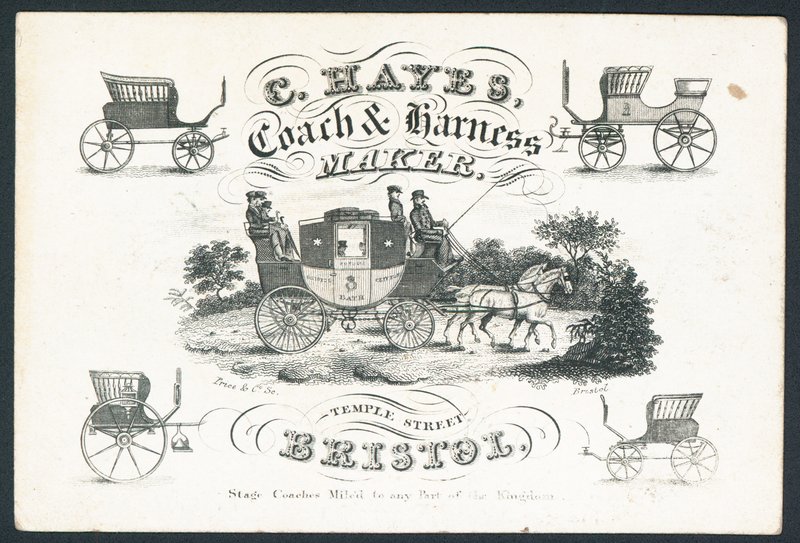 C. HAYES,
Coach & Harness
MAKER,
BATH
Price & Co. Sc.
Bristol
TEMPLE STREET
BRISTOL,
Stage Coaches Mile'd to any Part of the Kingdom.